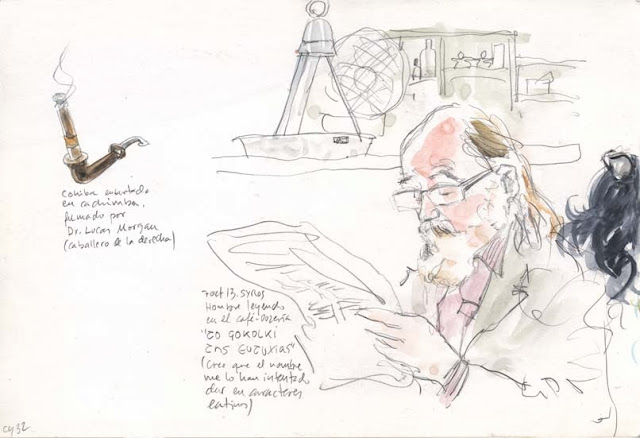 Cohiba enhustado
en cachimba,
fumado por
Dr. Lucas Morgan
(caballero de la derecha)
7 oct 13. SYROS
Hombre leyendo
en el café-ouzería
"TO GOKOLKI
TAS EUTUXIAS"
(creo que el nombre
me lo han intentado
dar en caracteres
latinos)